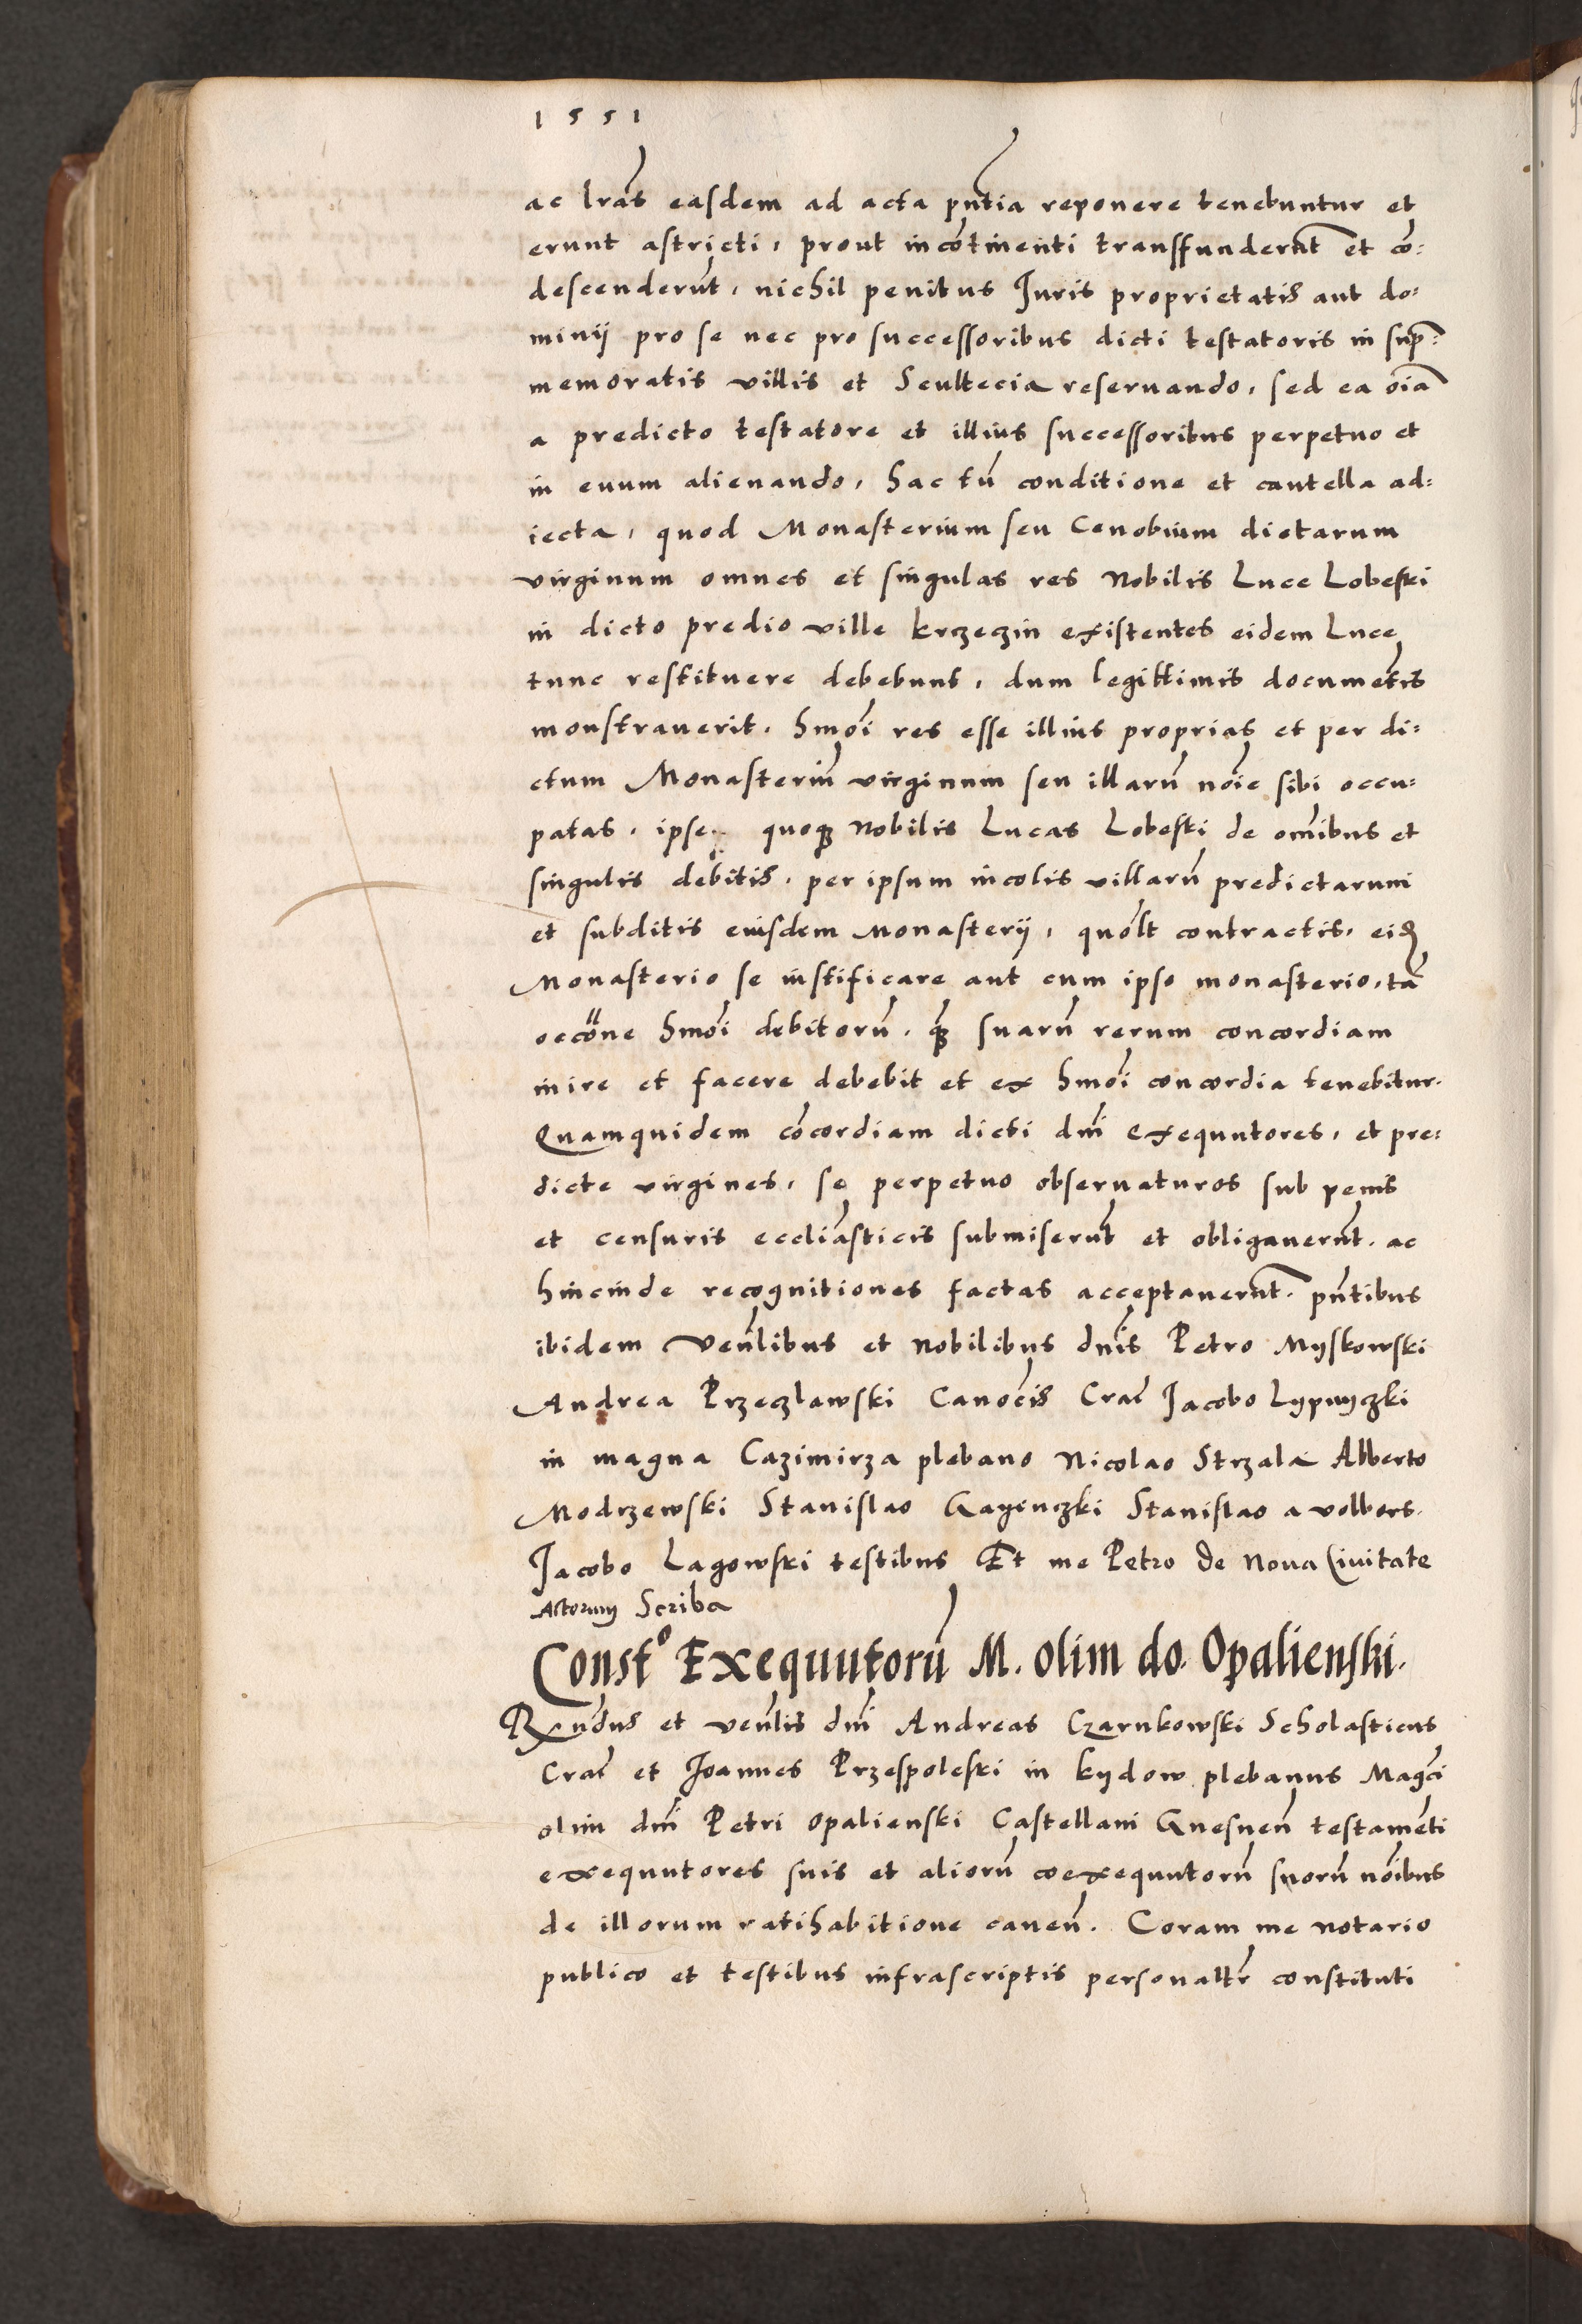 1551
ac lrãs easdem ad acta pñtia reponere tenebuntur et
erunt astricti, prout incõtinẽti transfunderũt et cõ:
descenderũt, nichil penitus Juris proprietatis aut do:
minij pro se nec pro successoribus dicti testatoris in sup:
memoratis villis et Scultecia reservando, sed ea oĩa
a predicto testatore et illius successoribus perpetuo et
in euum alienando, hac tñ conditione et cautella ad:
iecta, quod Monasterium seu Cenobium dictarum
virginum omnes et singulas res Nobilis Luce Lobeski
in dicto predio ville krzeczin existentes eidem Luce
tunc restituere debebunt, dum legittimis documẽtis
monstrauerit, hmõi res esse illius proprias et per di:
ctum Monasteriũ virginum seu illarũ noĩe sibi occu:
patas, ipse quoqȝ Nobilis Lucas Lobeski de oĩnibus et
singulis debitis, per ipsum incolis villarũ predictarum
et subditis eiusdem Monasterij, quõlt contractis, eidȝ
Monasterio se iustificare aut cum ipso monasterio, tã
occõne hmõi debitorũ, qȝ suarũ rerum concordiam
inire et facere debebit et ex hmõi concordia tenebitur.
Quamquidem cõcordiam dicti dñi exequutores, et pre:
dicte virgines, se perpetuo obseruaturos sub penis
et censuris eccliãsticis submiserũt et obligauerũt, ac
hincinde recognitiones factas acceptauerũt. pñtibus
ibidem Veñlibus et Nobilibus dñis Petro Myskowski
Andrea Przeczlawski Canoĉis Crac̃ Jacobo Lypnyczki
in magna Cazimirza plebano Nicolao Strzala Alberto
Modrzewski Stanislao Gayenczki Stanislao a volbors.
Jacobo Lagowski testibus Et me Petro de Noua Ciuitate
Actorum Scriba
Const° Exequutorũ M. olim do. Opalienski.
Rxñdus et veñlis dñi Andreas Czarnkowski Scholasticus
Crac̃ et Joannes Przespoleski in kydow plebanus Magc̃i
olim dñi Petri Opalienski Castellani Gnesneñ testamẽti
exequutores suis et aliorũ coexequutorũ suorũ noĩbus
de illorum ratihabitione caueñ. Coram me notario
publico et testibus infrascriptis personaltr̃ constituti